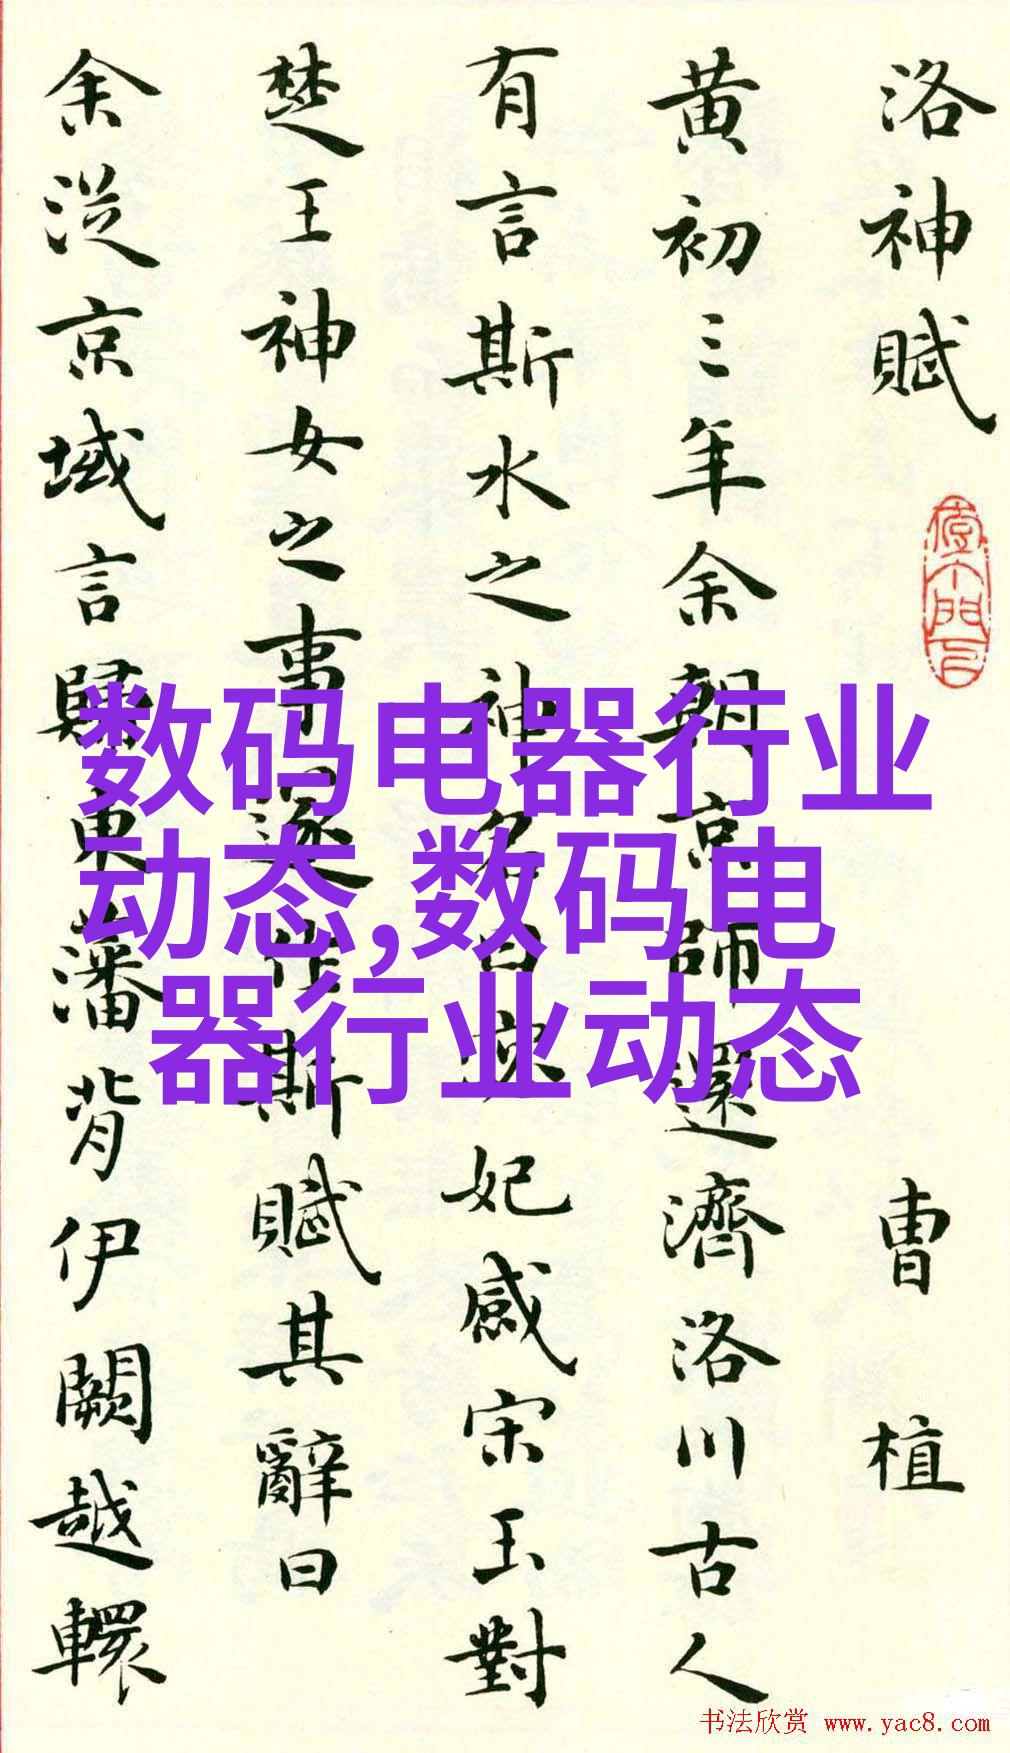 洛神賦
曹植
黄初三年余朝京師還濟洛川古人
有言斯水之神名曰宓妃感宋玉對
楚王神女之事遂作斯賦其辭曰
余從京域言歸東藩背伊闕越轘
数码电器行业
动态,数码电
器行业动态
书法欣赏 www.yac8.com